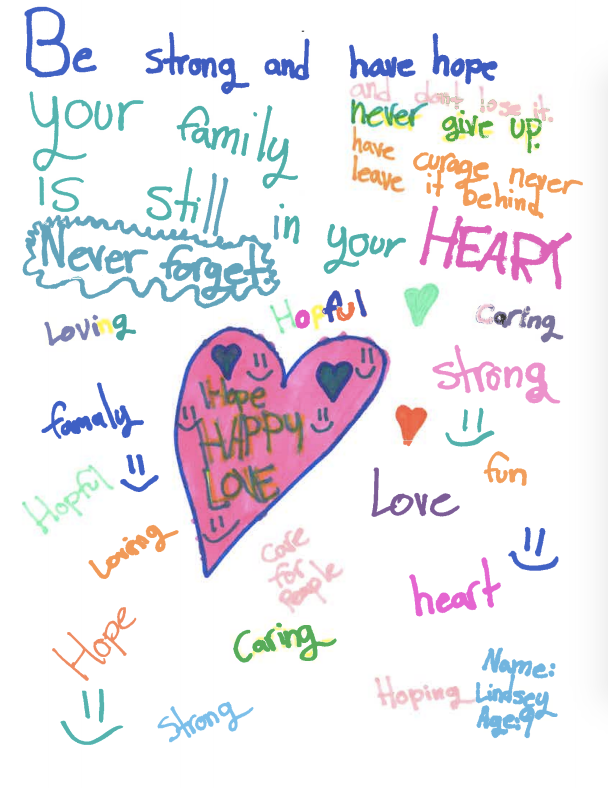 Be strong and have hope
and don't lose it.
never give up.
have curage never
leave it behind
your family
is still in your HEART
Never forget.
Loving
Hopful
Caring
strong
Hope
HAPPY
LOVE
famaly
fun
Hopful
Love
Loving
Care
for
People
heart
Hope
Caring
Hoping
Name:
Lindsey
Age:9
Strong